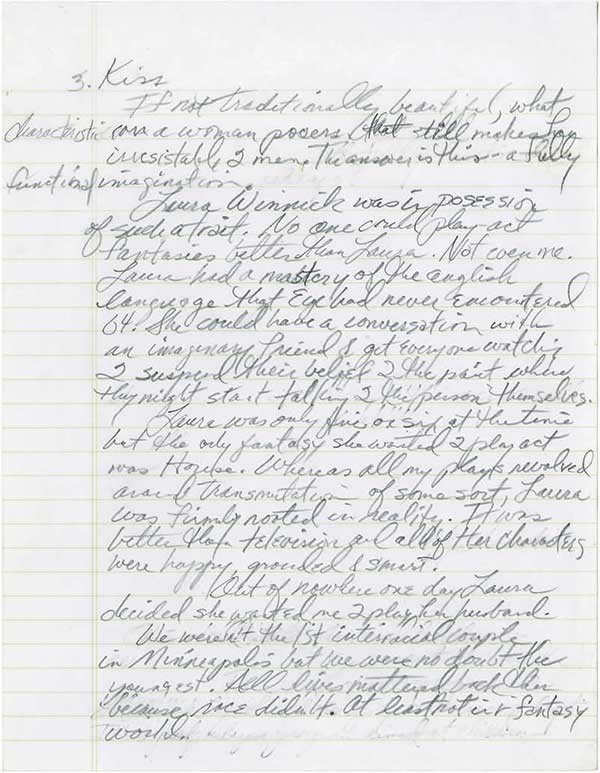 3. Kiss
If not traditionally beautiful, what
characteristic can a woman posess that still makes her
irresistable 2 men. The answer is this - a fully
functional imagination.
Laura Winnick was in posession
of such a trait. No one could play act
fantasies better than Laura. Not even me.
Laura had a mastery of the english
language that Eye had never encountered
b4. She could have a conversation with
an imaginary friend & get everyone watching
2 suspend their belief 2 the point where
they might start talking 2 the person themselves.
Laura was only five or six at the time
but the only fantasy she wanted 2 play act
was House. Whereas all my plays revolved
around transmutation of some sort, Laura
was firmly rooted in reality. It was
better than television and all of her characters
were happy, grounded & smart.
Out of nowhere one day Laura
decided she wanted me 2 play her husband.
We weren't the 1st interracial couple
in Minneapolis but we were no doubt the
youngest. All lives mattered back then
because race didn't. At least not in r fantasy
world.